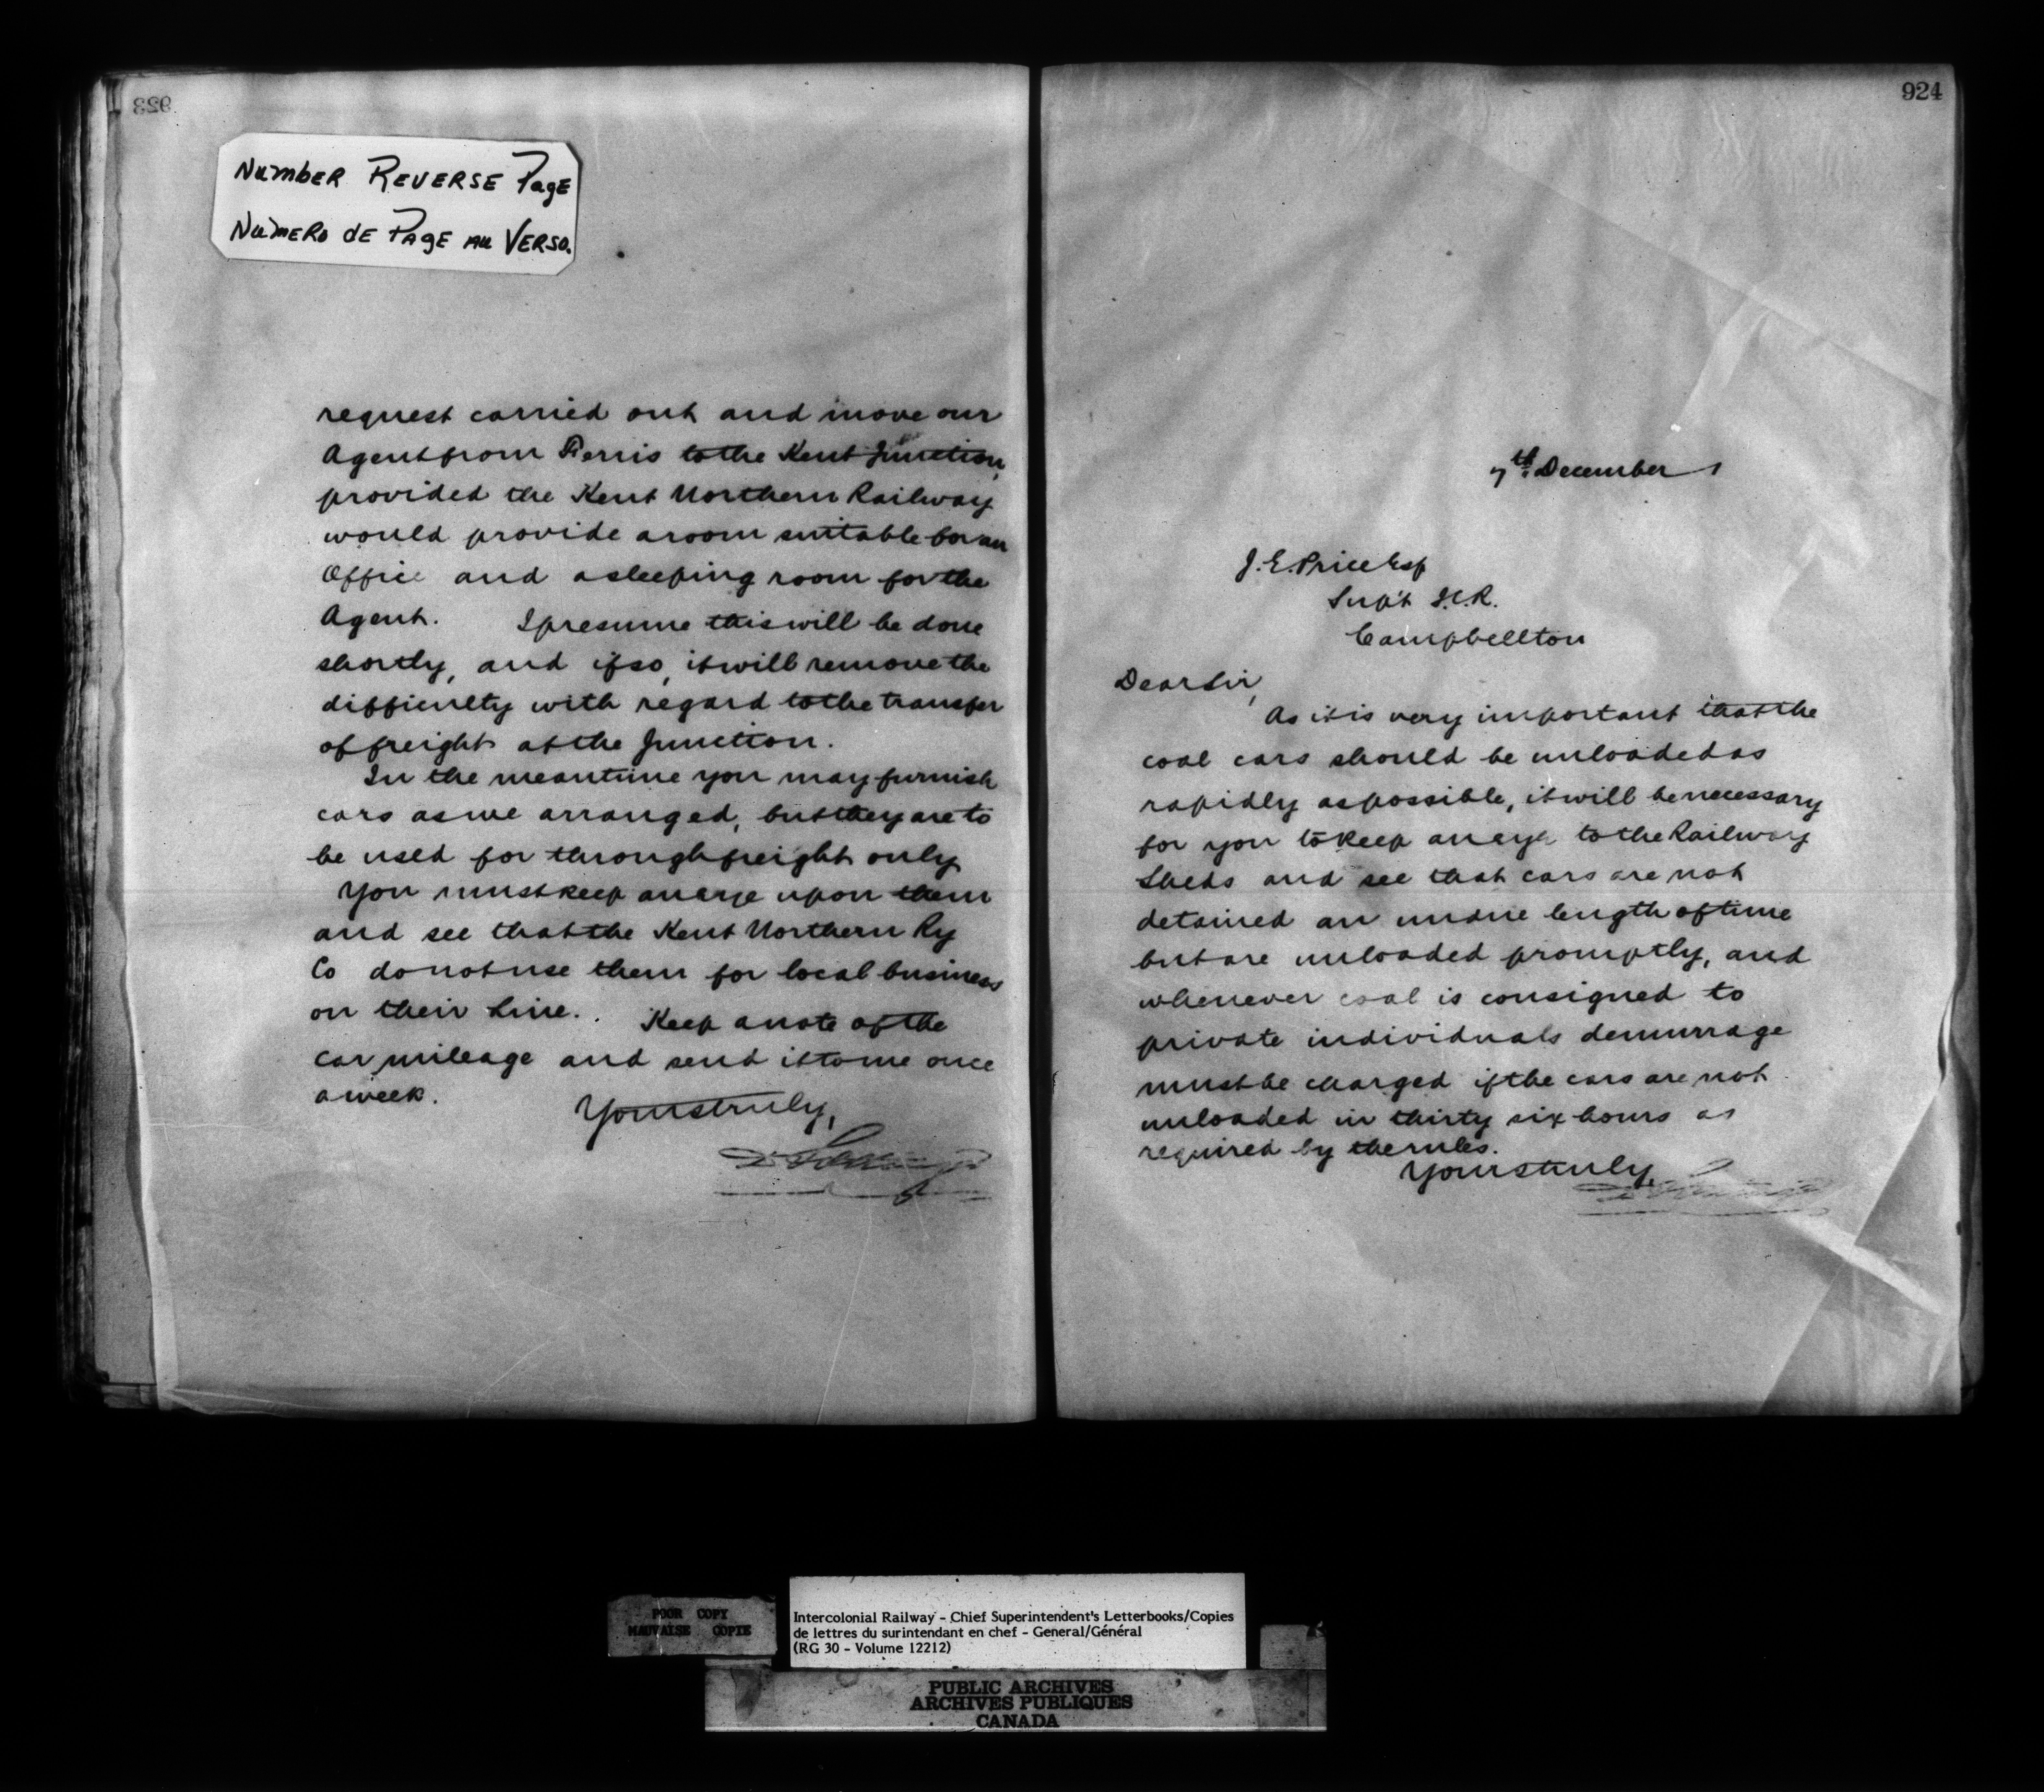 923
NUMBER REVERSE PAGE
NUMERO DE PAGE AU VERSO.
request carried out and move our
Agent from Ferris to the Kent Junction,
provided the Kent Northern Railway
would provide a room suitable for an
Office and a sleeping room for the
Agent. I presume this will be done
shortly, and if so, it will remove the
difficulty with regard to the transfer
of freight at the Junction.
In the meantime you may furnish
cars as we arranged, but they are to
be used for through freight only
You must keep an eye upon them
and see that the Kent Northern Ry
Co do not use them for local business
on their Line. Keep a note of the
car mileage and send it to me once
a week.
Yours truly,
924
7th December
J. E. Price Esq
Sup't I.C.R.
Campbellton
Dear Sir,
As it is very important that the
coal cars should be unloaded as
rapidly as possible, it will be necessary
for you to keep an eye to the Railway
Sheds and see that cars are not
detained an undue length of time
but are unloaded promptly, and
whenever coal is consigned to
private individuals demurrage
must be charged if the cars are not
unloaded in thirty six hours as
required by the rules.
Yours truly,
POOR COPY
MAUVAISE COPIE
Intercolonial Railway - Chief Superintendent's Letterbooks/Copies
de lettres du surintendant en chef - General/Général
(RG 30 - Volume 12212)
PUBLIC ARCHIVES
ARCHIVES PUBLIQUES
CANADA